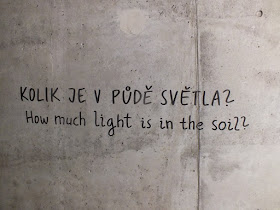 KOLIK JE V PŮDĚ SVĚTLA?
How much light is in the soil?